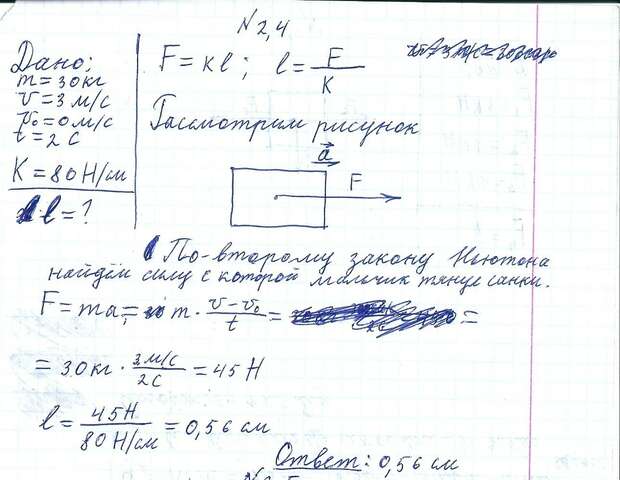 N 2,4
Дано:
m = 30 кг
v = 3 м/с
v₀ = 0 м/с
t = 2 с
K = 80 Н/см
l = ?
F = Kl; l = F/K
Рассмотрим рисунок
a⃗
F
По-второму закону Ньютона
найдём силу с которой мальчик тянуе санки.
F = ma = m · (v - v₀)/t = =
= 30 кг · (3 м/с)/(2 с) = 45 Н
l = (45 Н)/(80 Н/см) = 0,56 см
Ответ: 0,56 см